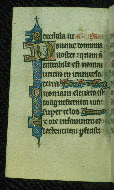 Benedicta tu
Domine dominus
noster quam ad
mirabile est nomen
tuum in universa
terra
Quoniam elevata est
magnificentia tua
super celos
Ex ore infantium et
lactentium perfecisti